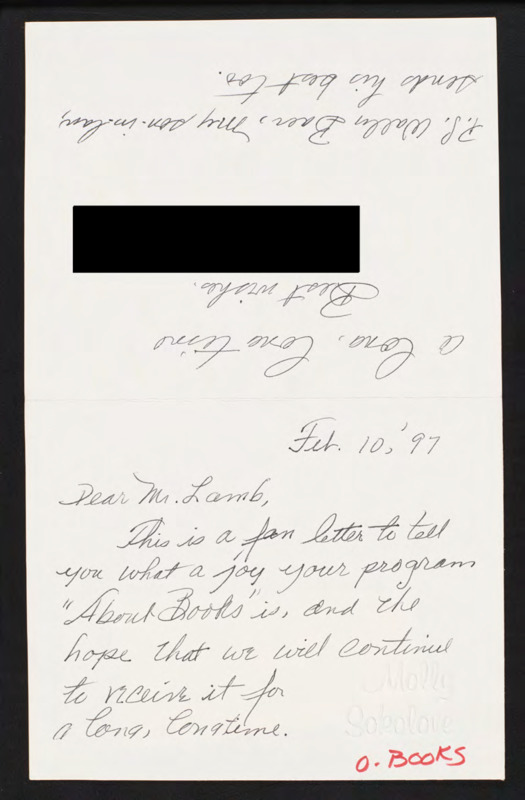 Feb. 10, '97
Dear Mr. Lamb,
This is a fan letter to tell
you what a joy your program
"About Books" is, and the
hope that we will continue
to receive it for
a long, longtime.
Molly
Sokolove
O. BOOKS
a long, long time
Best wishes.
P.S. Wally Baer, my son-in-law,
sends his best too.